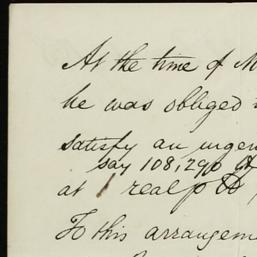 At the time of M
he was obliged
satisfy an urgen
say 108,290
at 1 real p lb
To this arrangem